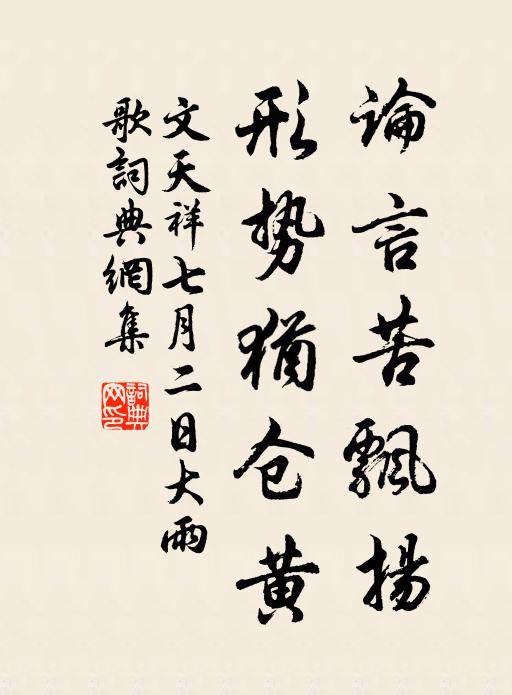 論言苦飄揚
形势猶仓黄
文天祥七月二日大雨
歌詞典網集
詞典网印